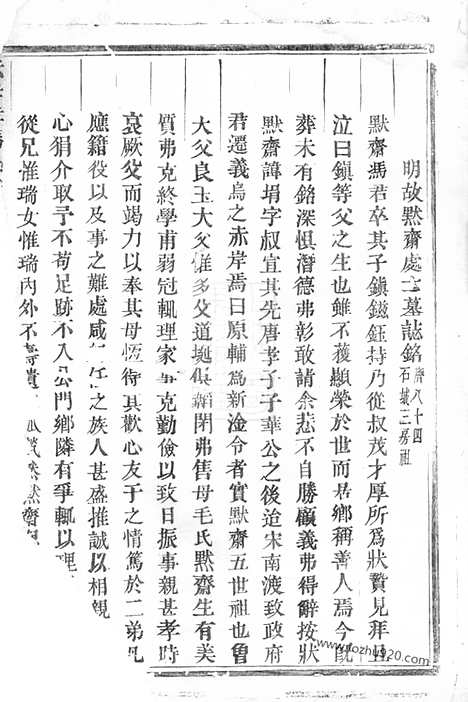 明故默齋處士墓誌銘 唐八十四
石城三房祖
默齋馮君卒其子鎮鎡鈺持乃從叔茂才厚所爲狀贄見拜且
泣曰鎮等父之生也鮮不獲顯榮於世而居鄉稱善人焉今旣
葬未有銘深懼潛德弗彰敢請余悲不自勝顧義弗得辭按狀
默齋諱埍字叔宜其先唐孝子子華公之後迨宋南渡致政府
君遷義烏之赤岸焉曰原輔爲新淦令者實默齋五世祖也曾
大父良玉大父惟多父道埏俱韜閉弗售母毛氏默齋生有美
質弗克終學甫弱冠輒理家事克勤儉以致日振事親甚孝時
哀厥父而竭力以奉其母恆得其歡心友于之情篤於二弟凡
應籍役以及事之難處咸 任之族人甚盛推誠以相親
心狷介取予不苟足跡不入公門鄉隣有爭輒以理
從兄惟瑞女惟瑞內外不 默齋
www.fozhu920.com